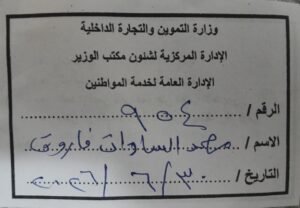 وزارة التموين والتجارة الداخلية
الإدارة المركزية لشئون مكتب الوزير
الإدارة العامة لخدمة المواطنين
الرقم / ٩٥٤
الاسم / محمد السادات فاروق
التاريخ / ٣٠ / ٦ / ٢٠٢٦